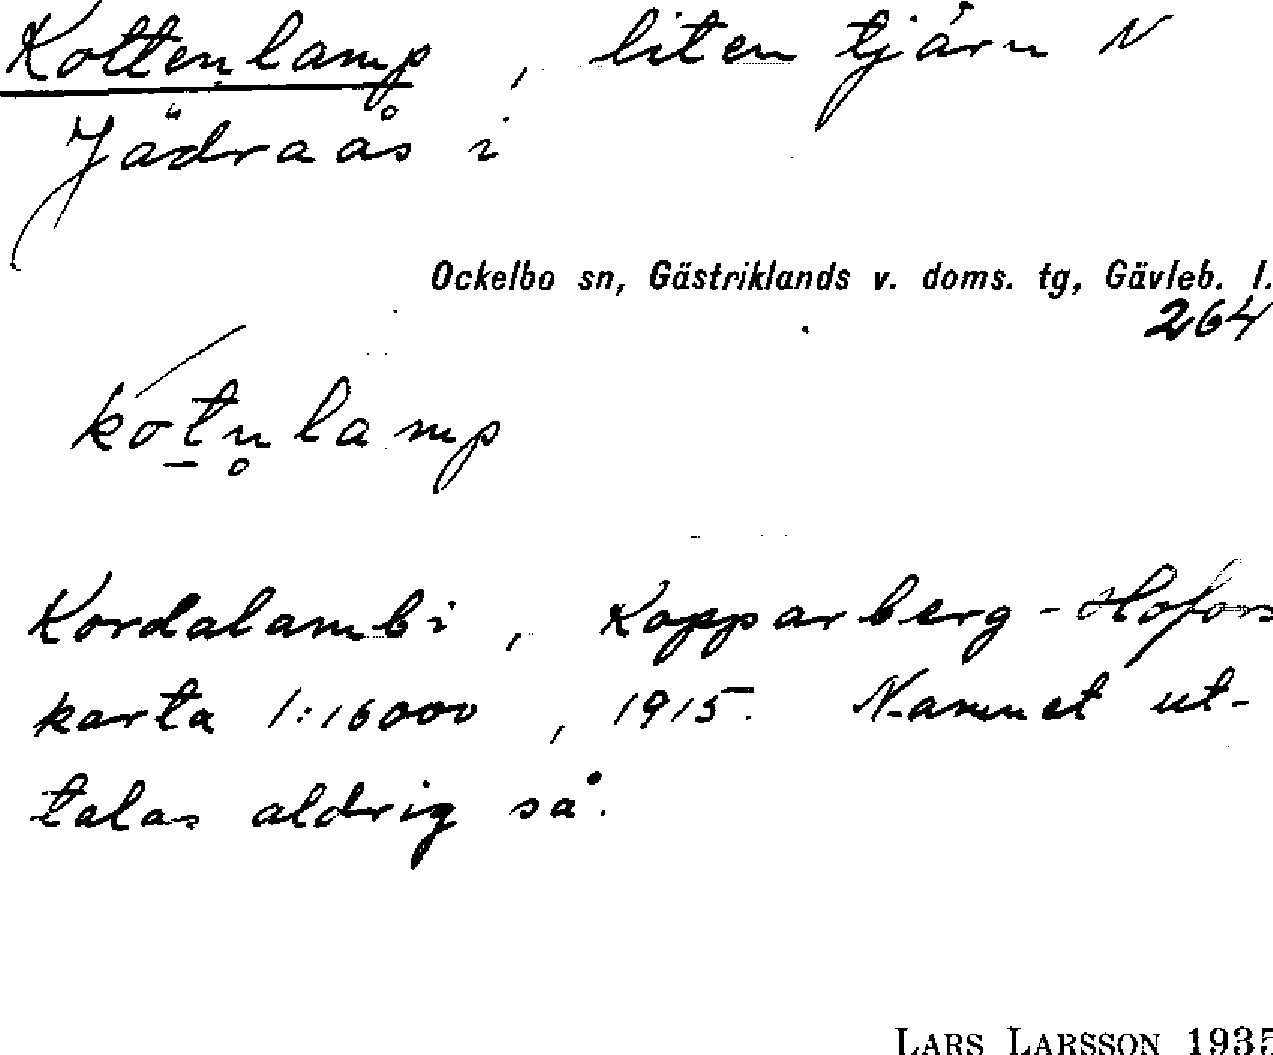 Kottenlamp, liten tjärn N
Jädraås i
Ockelbo sn, Gästriklands v. doms. tg, Gävleb. l.
264
kot̲n̥lamp
Kordalambi, Kopparberg-Hofors
karta 1:16000, 1915. Namnet ut-
talas aldrig så.
LARS LARSSON 1935